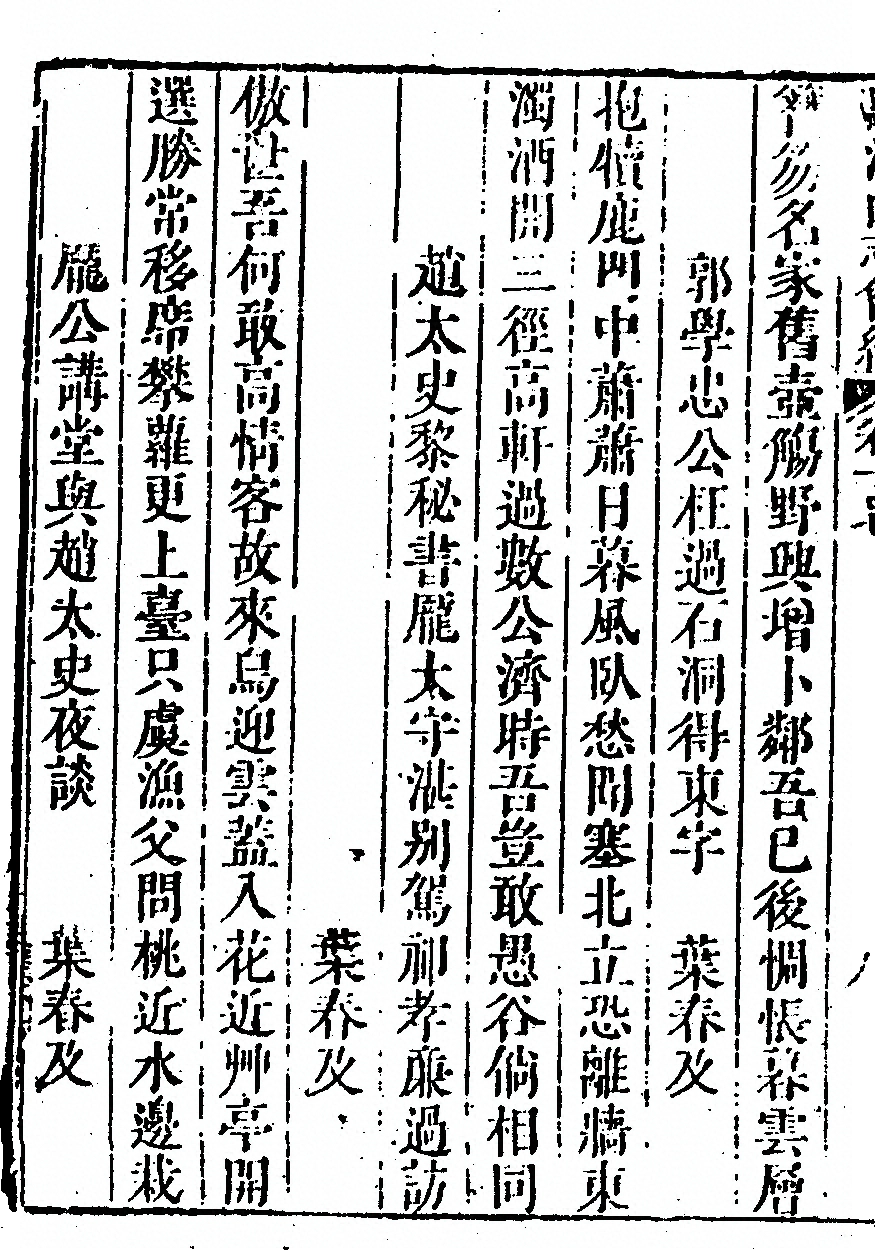 勿名家舊壺觴野興增卜鄰吾已後惆悵暮雲層
郭學忠公枉過石洞得東字 葉春及
抱犢鹿門中蕭蕭日暮風臥愁聞塞北立恐離牆東
濁酒開三徑高軒過數公濟時吾豈敢愚谷倘相同
趙太史黎秘書龐太守湛别駕祁孝廉過訪
葉春及
傲世吾何敢高情客故來鳥迎雲蓋入花近艸亭開
選勝常移席攀蘿更上臺只虞漁父問桃近水邊栽
龐公講堂與趙太史夜談 葉春及